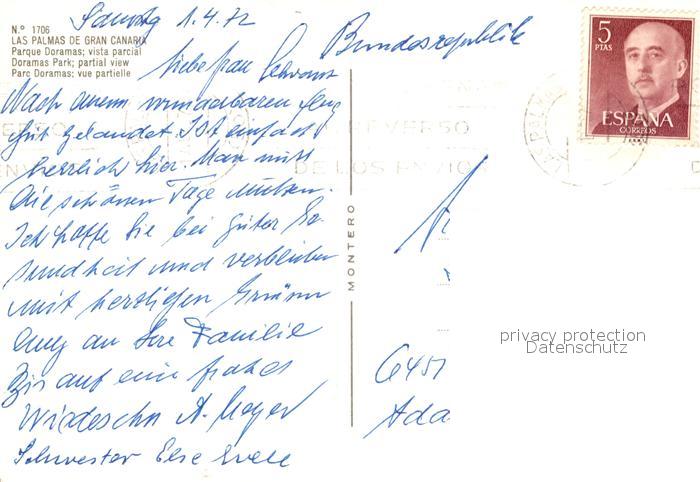 N.° 1706
LAS PALMAS DE GRAN CANARIA
Parque Doramas; vista parcial
Doramas Park; partial view
Parc Doramas; vue partielle
1.4.72
Liebe Frau
Nach einem wunderbaren Flug
gut gelandet. Ist einfach
herrlich hier. Man muß
die schönen Tage nützen.
Ich hoffe Sie bei guter Ge
sundheit und verbleibe
mit herzlichen Grüßen
auch an Ihre Familie
Bis auf ein frohes
Wiedersehn A. Meyer
Schwester Else
MONTERO
Bundesrepublik
5
PTAS
ESPAÑA
CORREOS
REVERSO
DE LOS ENVIOS
6451
Ada
privacy protection
Datenschutz